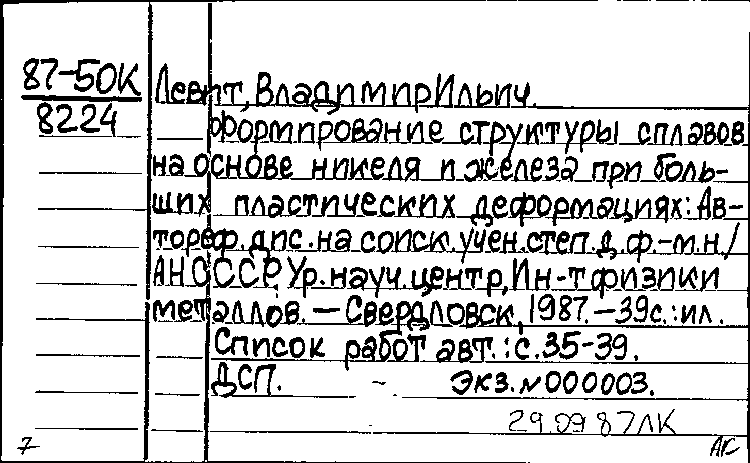 87-50К
8224
Левит, Владимир Ильич.
Формирование структуры сплавов
на основе никеля и железа при боль-
ших пластических деформациях: Ав-
тореф. дис. на соиск. учен. степ. д. ф.-м. н./
АН СССР, Ур. науч. центр, Ин-т физики
металлов. — Свердловск, 1987. — 39с.: ил.
Список работ авт.: с. 35-39.
ДСП. Экз. № 000003.
29.09.87 ЛК
7 АС